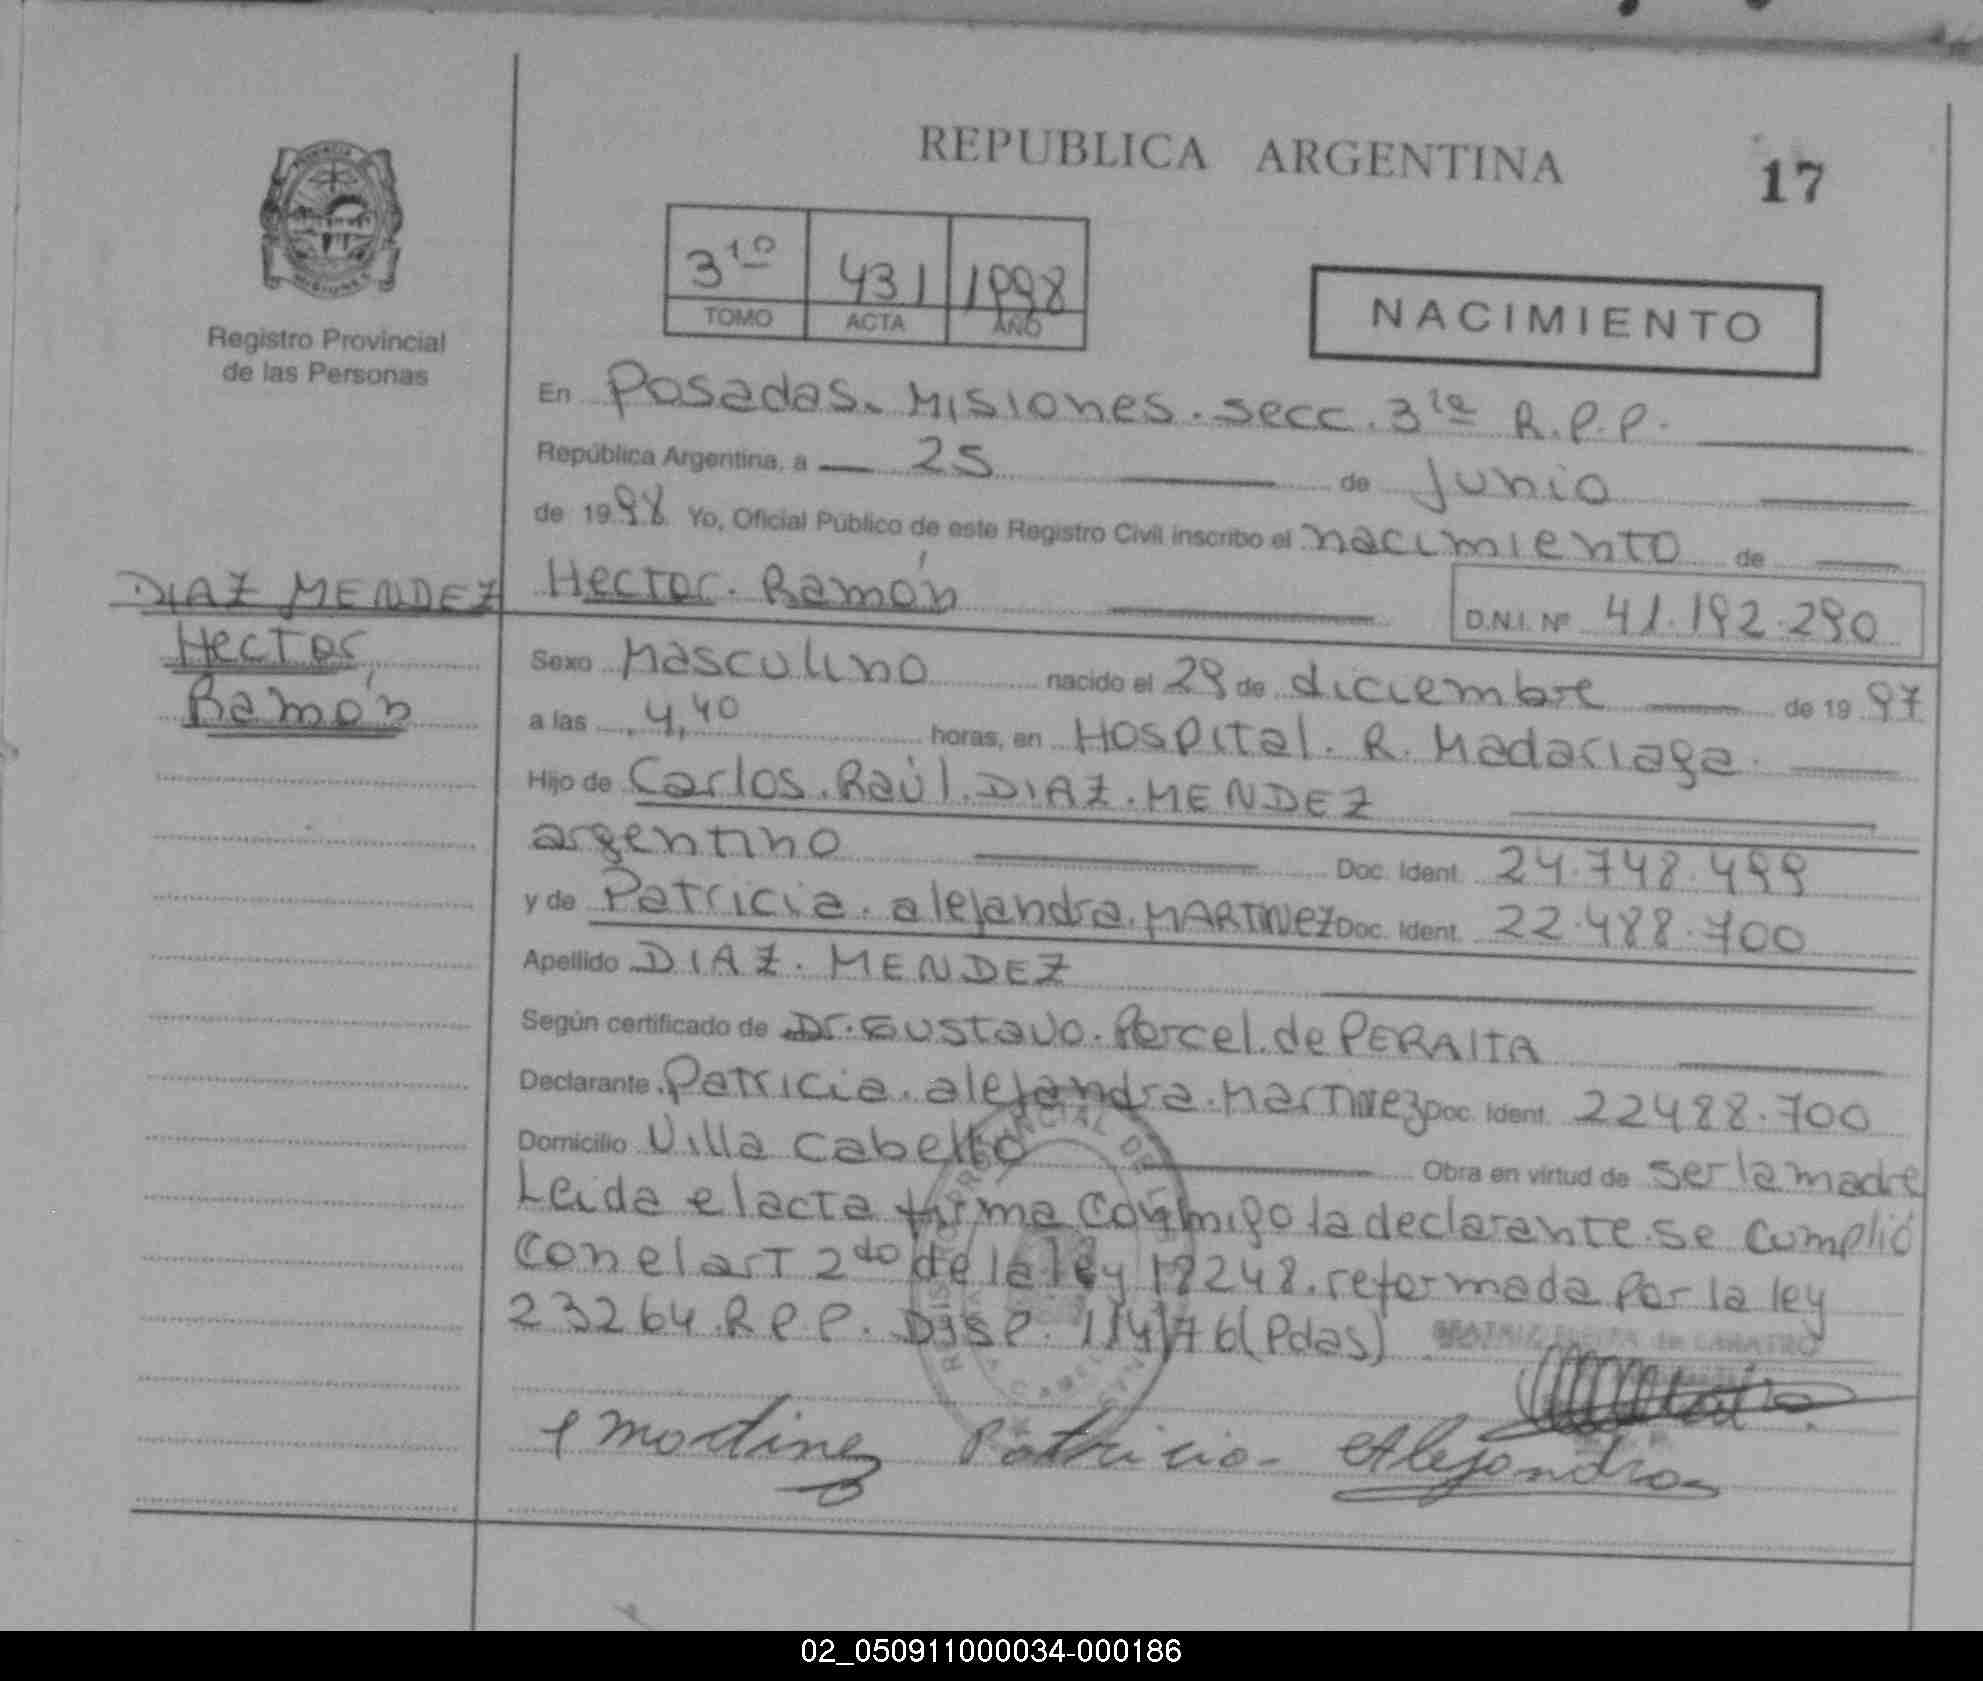 REPUBLICA ARGENTINA
17
3ro 431 1998
TOMO ACTA AÑO
NACIMIENTO
Registro Provincial
de las Personas
En Posadas. Misiones. secc. 3ra R.P.P.
República Argentina, a 25 de Junio
de 1998 Yo, Oficial Público de este Registro Civil inscribo el nacimiento de
DIAZ MENDEZ
Hector
Ramón
Hector. Ramón D.N.I. Nº 41.192.290
Sexo Masculino nacido el 29 de diciembre de 1997
a las 4,40 horas, en Hospital. R. Madariaga.
Hijo de Carlos. Raúl. DIAZ. MENDEZ
argentino Doc. Ident. 24.748.499
y de Patricia. alejandra. MARTINEZ Doc. Ident. 22.488.700
Apellido DIAZ. MENDEZ
Según certificado de Dr. Gustavo. Porcel. de PERALTA
Declarante Patricia. alejandra. Martinez Doc. Ident. 22488.700
Domicilio Villa Cabello Obra en virtud de ser la madre
Leida el acta firma conmigo la declarante. se cumplió
con el art 2do de la ley 18248. reformada por la ley
23264. R.P.P. Disp. 114/76 (Pdas)
Martinez Patricia Alejandra
02_050911000034-000186